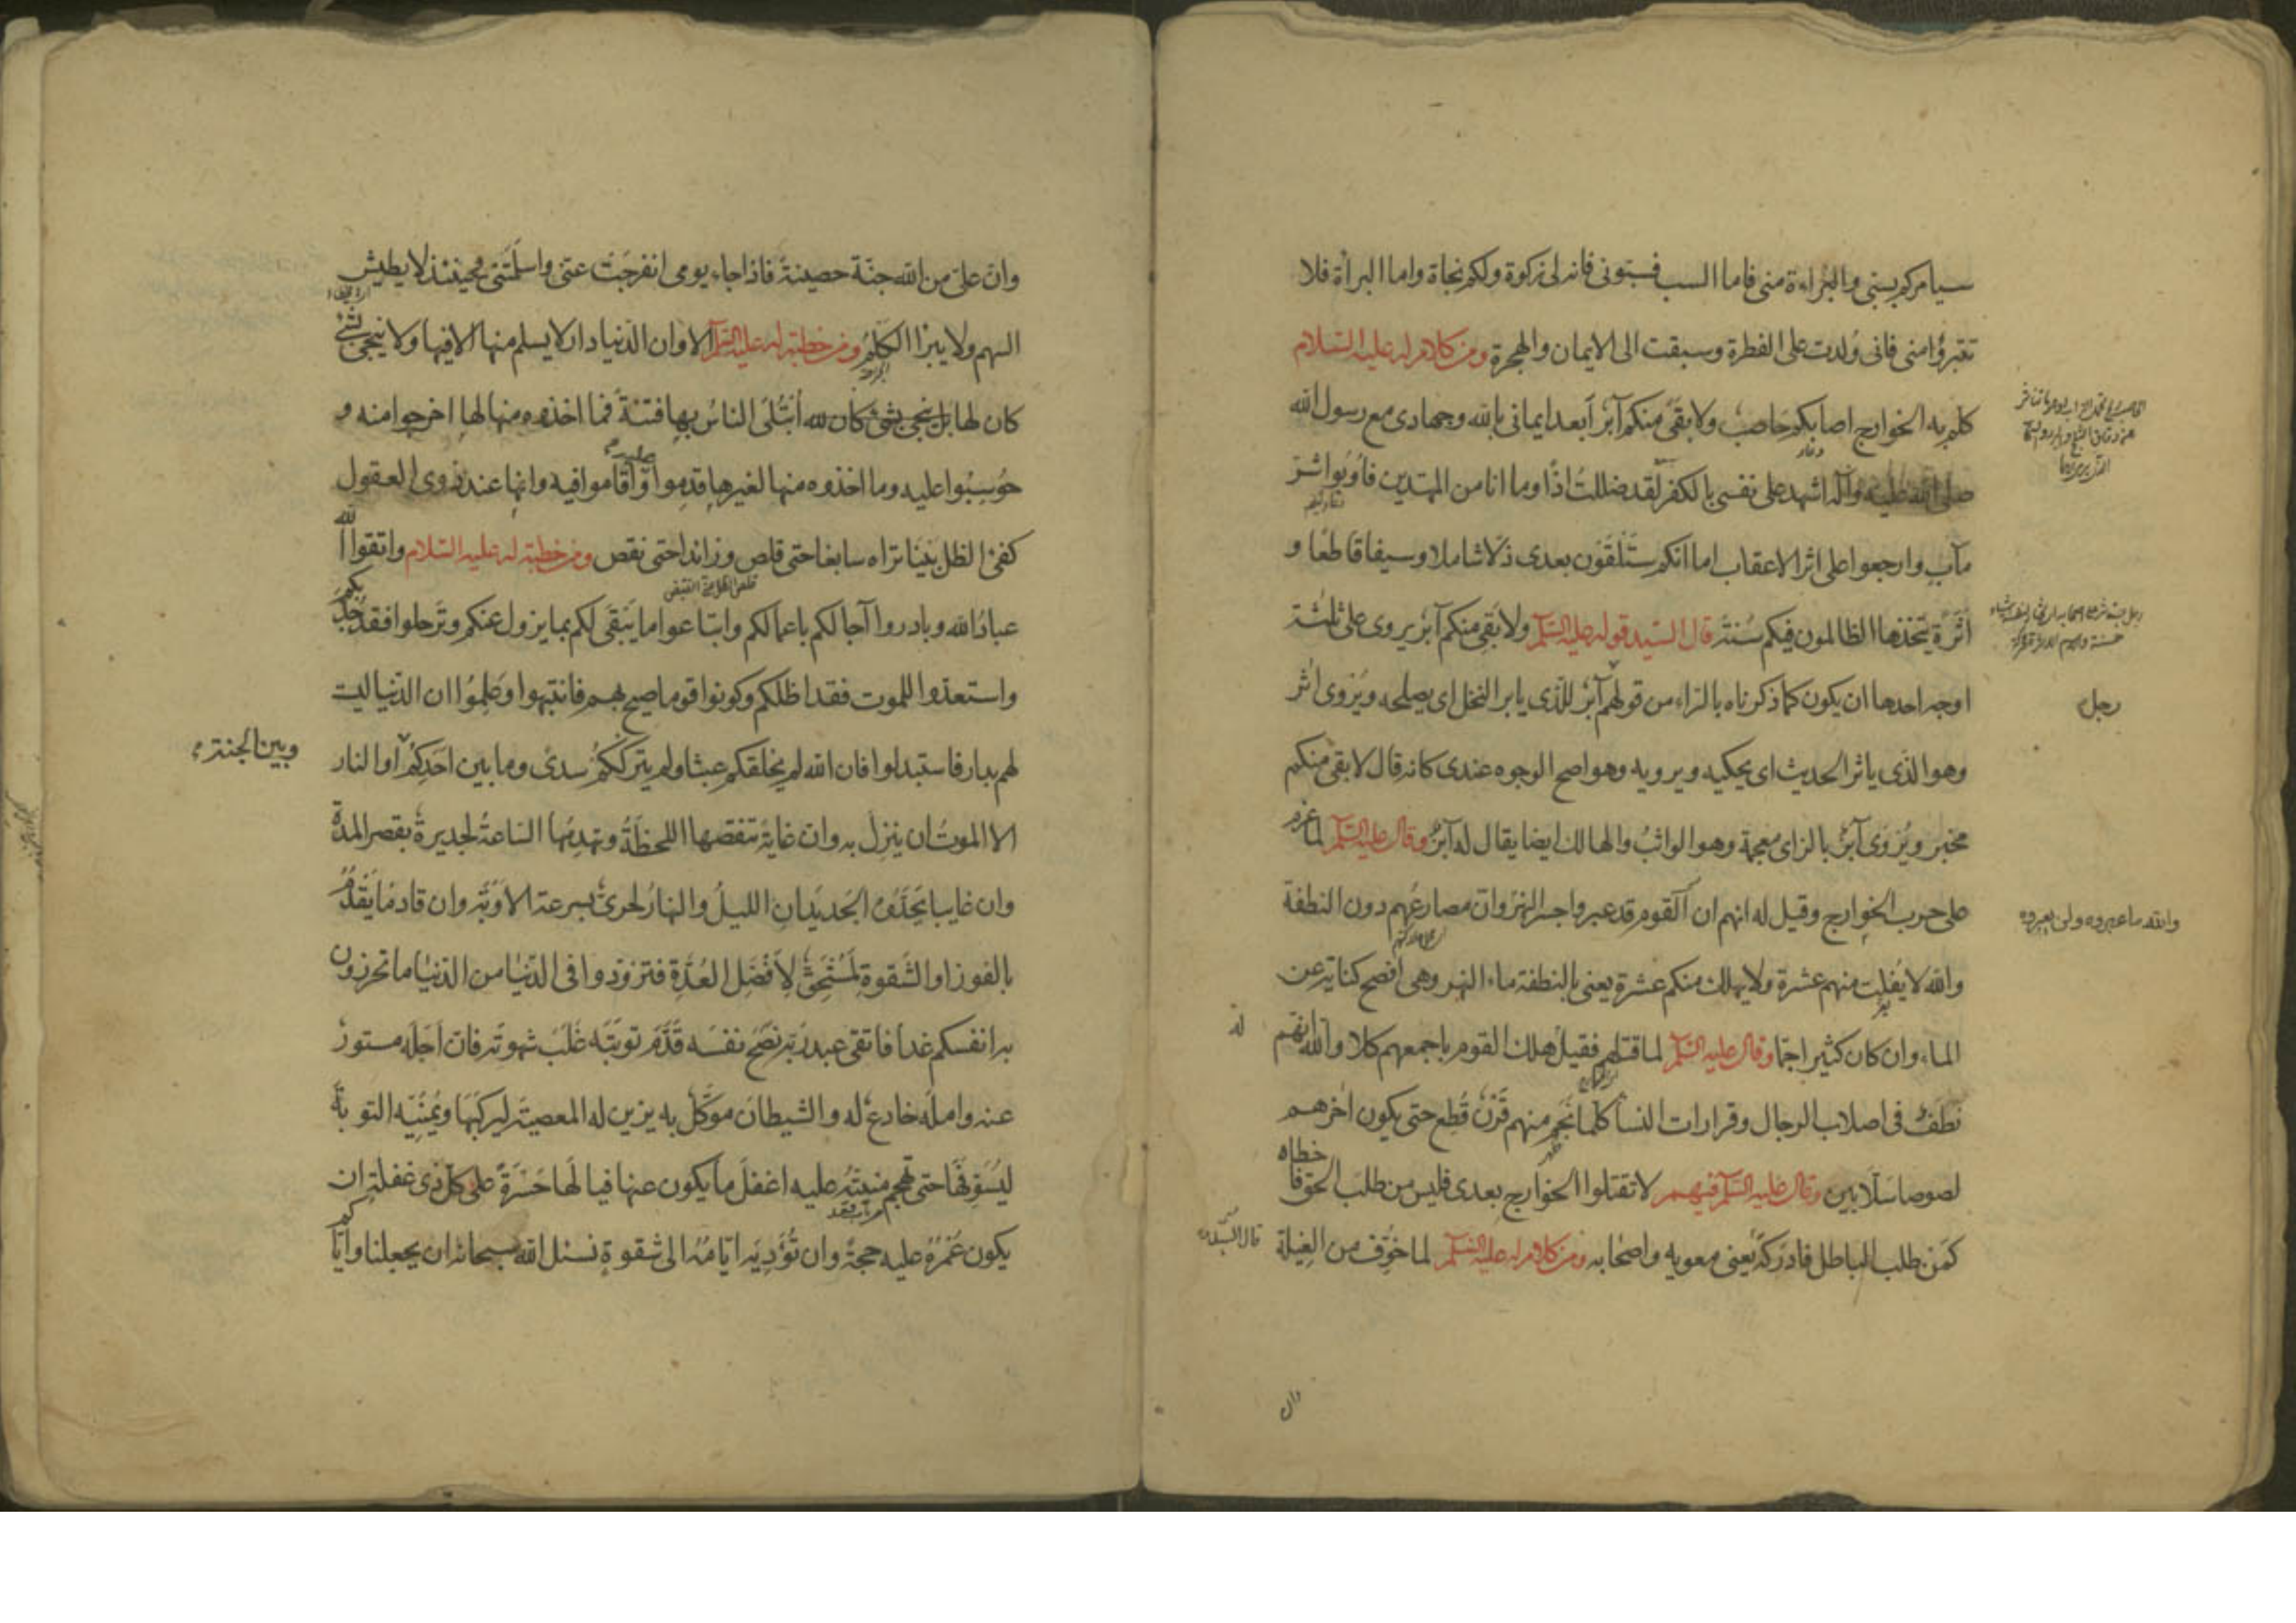 سيامركم بسبى والبراءة منى فاما السب فسبونى فانه لى زكوة ولكم نجاة واما البرأة فلا
تتبرؤا منى فانى وُلدت على الفطرة وسبقت الى الايمان والهجرة ومن كلام له عليه السلام
كلم به الخوارج اصابكم حَاصبٌ ولا بقىَ منكم آبرٌ اَبعد ايمانى بالله وجهادى مع رسول الله
صلى الله عليه وآله اشهد على نفسى بالكفر لقد ضللتُ اذًا وما انا من المهتدين فأوُبُوا شرّ
مآبٍ وارجعوا على اثر الاعقاب اما انكم ستَلقَوْن بعدى ذلًا شاملا وسيفا قاطعًا و
اَثَرَةً يتخذها الظالمون فيكم سُنّة قال السّيد قوله عليه السّلم ولا بَقِىَ منكم آبرٌ يروى على ثلثة
اوجه احدها ان يكون كما ذكرناه بالراء من قولهم آبرٌ للذى يابر النخل اى يصلحه ويُروى اٰثر
رجل
وهو الذى ياثر الحديث اى يحكيه ويرويه وهو اصح الوجوه عندى كانه قال لا بقى منكم
مخبر ويُروَى آبزٌ بالزاى معجمة وهو الواثبُ والهالك ايضا يقال له آبزٌ وقال عليه السّلم لما عزم
على حرب الخوارج وقيل له انهم ان القوم قد عبروا جسر النهروان مصارعُهم دون النطفة
والله ما عبروه ولن يعبروه
والله لا يُفلِت منهم عشرة ولا يهلك منكم عشرة يعنى بالنطفة ماء النهر وهى افصح كناية عن
الماء وان كان كثيرا جمّا وقال عليه السّلم لما قتلهم فقيل هلك القوم باجمعهم كلا والله انهم
له
نُطَفٌ فى اصلاب الرجال وقرارات النسا كلّما نَجَم منهم قَرْنٌ قُطِع حتى يكون اخرهم
لصوصا سَلّابين وقال عليه السّلم فيهم لا تقتلوا الخوارج بعدى فليس من طلب الحق فا
خطاه
كمَن طلب الباطل فادركهُ يعنى معويه واصحابه ومن كلام له عليه السّلم لما خُوِّف من الغِيلة
وان
وانّ علىّ من الله جنّة حصينةً فاذا جاء يومى انفرجَتْ عنى واسلَمَتْنى فحينئذ لا يطيش
السهم ولا يبرأ الكَلْمُ ومن خطبة له عليه السّلم الا وان الدنيا دار لا يسلم منها الا فيها ولا ينجى
بشئ
كان لها بل ينجى بشئ كان لله اُبتُلِىَ الناسُ بها فتنةً فما اخذوه منها لها اخرجوا منه و
حُوسِبُوا عليه وما اخذوه منها لغيرها قدِموا عليه واَقاموا فيه وانها عند ذوى العقول
كفئ الظل بَيْنَا تراه سابغا حتى قلص وزائدا حتى نقص ومن خطبة له عليه السّلام واتقوا الله
عبادَ الله وبادروا آجالكم باعمالكم وابتاعوا ما يَبْقَى لكم بما يزول عنكم وتَرحلوا فقد جُدّ بكم
واستعدّوا للموت فقد اظلكم وكونوا قوما صِيحَ بهم فانتبهوا وعَلِمُوا ان الدّنيا ليست
لهم بدار فاستبدلوا فان الله لم يخلقكم عبثًا ولم يترككُم سدىً وما بين احَدِكُم او النار
وبين الجنة
الا الموتُ ان ينزلَ به وان غايةً تنقصها اللحظةُ وتهدِمُها السّاعةُ لجديرةٌ بقصر المدة
وان غايبا يَحدُوه الجَديدَانِ الليلُ والنهارُ لحرىٌّ بسرعة الاَوْبَة وان قادمًا يَقدُمُ
بالفوز او الشَقوةِ لمُستَحِقٌّ لِاَفضَلِ العُدَّةِ فتزوّدوا فى الدّنيا من الدّنيا ما تحرزون
به انفسكم غدا فاتقى عبد ربّه نَصَحَ نفسَه قَدَّمَ توبتَه غَلَبَ شهوتَه فان اَجَلَه مستورٌ
عنه واملَه خادعٌ له والشيطانَ موَكّلٌ به يزين له المعصيَة ليركبَهَا ويُمَنّيه التوبةَ
ليُسَوِّفَهَا حتى تهجم منيتُه عليه اغفلَ ما يكون عنها فيا لَها حَسْرَةً على كل ذى غفلة ان
يكون عُمْرُهُ عليه حجةً وان تُؤَدِّيَه ايّامُهُ الى شقوةٍ نسئل الله سبحانه ان يجعلنا وايّاكم